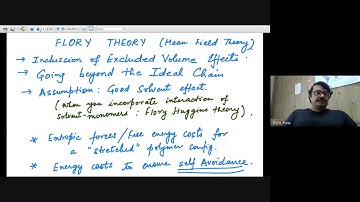 FLORY THEORY (Mean Field Theory)
→ Inclusion of Excluded Volume Effects:
→ Going beyond the Ideal Chain
→ Assumption: Good Solvent effect.
(When you incorporate interaction of
solvent-monomers: Flory Huggins theory).
* Entropic forces/free energy costs for
a "stretched" polymer config.
* Energy costs to ensure self Avoidance.